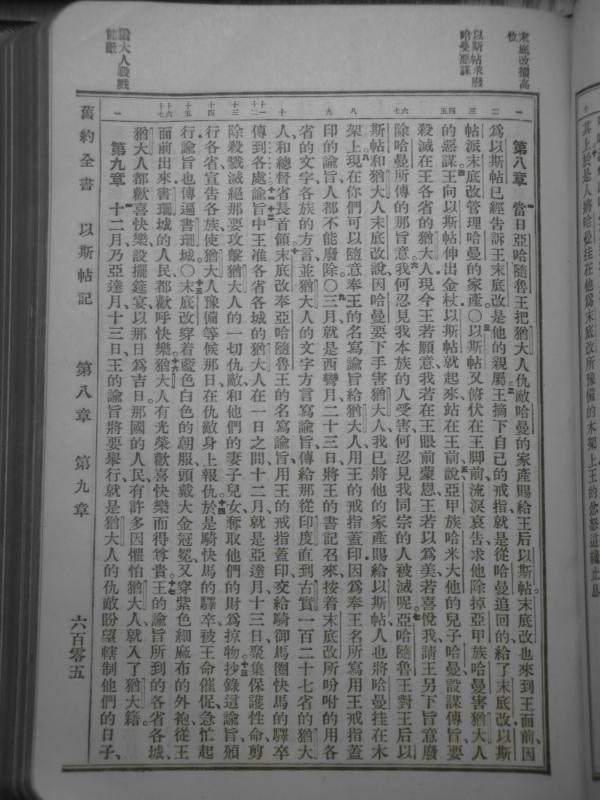 其上於是人將哈曼挂在他爲末底改所豫備的木架上王的忿怒這纔止息
末底改擢高位
以斯帖求廢哈曼惡謀
猶大人殺戮仇敵
第八章 當日亞哈隨魯王把猶大人仇敵哈曼的家產賜給王后以斯帖末底改也來到王面前因
爲以斯帖已經告訴王末底改是他的親屬王摘下自己的戒指就是從哈曼追回的給了末底改以斯
帖派末底改管理哈曼的家產〇以斯帖又俯伏在王脚前流淚哀告求他除掉亞甲族哈曼害猶大人
的惡謀王向以斯帖伸出金杖以斯帖就起來站在王前說亞甲族哈米大他的兒子哈曼設謀傳旨要
殺滅在王各省的猶大人現今王若願意我若在王眼前蒙恩王若以爲美若喜悅我請王另下旨意廢
除哈曼所傳的那旨意我何忍見我本族的人受害何忍見我同宗的人被滅呢亞哈隨魯王對王后以
斯帖和猶大人末底改說因哈曼要下手害猶大人我已將他的家產賜給以斯帖人也將哈曼挂在木
架上現在你們可以隨意奉王的名寫諭旨給猶大人用王的戒指蓋印因爲奉王名所寫用王戒指蓋
印的諭旨人都不能廢除〇三月就是西彎月二十三日將王的書記召來按着末底改所吩咐的用各
省的文字各族的方言並猶大人的文字方言寫諭旨傳給那從印度直到古實一百二十七省的猶大
人和總督省長首領末底改奉亞哈隨魯王的名寫諭旨用王的戒指蓋印交給騎御馬圈快馬的驛卒
傳到各處諭旨中王准各省各城的猶大人在一日之間十二月就是亞達月十三日聚集保護性命剪
除殺戮滅絕那要攻擊猶大人的一切仇敵和他們的妻子兒女奪取他們的財爲掠物抄錄這諭旨頒
行各省宣告各族使猶大人豫備等候那日在仇敵身上報仇於是騎快馬的驛卒被王命催促急忙起
行諭旨也傳遍書珊城〇末底改穿着藍色白色的朝服頭戴大金冠冕又穿紫色細麻布的外袍從王
面前出來書珊城的人民都歡呼快樂猶大人有光榮歡喜快樂而得尊貴王的諭旨所到的各省各城
猶大人都歡喜快樂設擺筵宴以那日爲吉日那國的人民有許多因懼怕猶大人就入了猶大籍
第九章 十二月乃亞達月十三日王的諭旨將要舉行就是猶大人的仇敵盼望轄制他們的日子
舊約全書 以斯帖記 第八章 第九章 六百零五